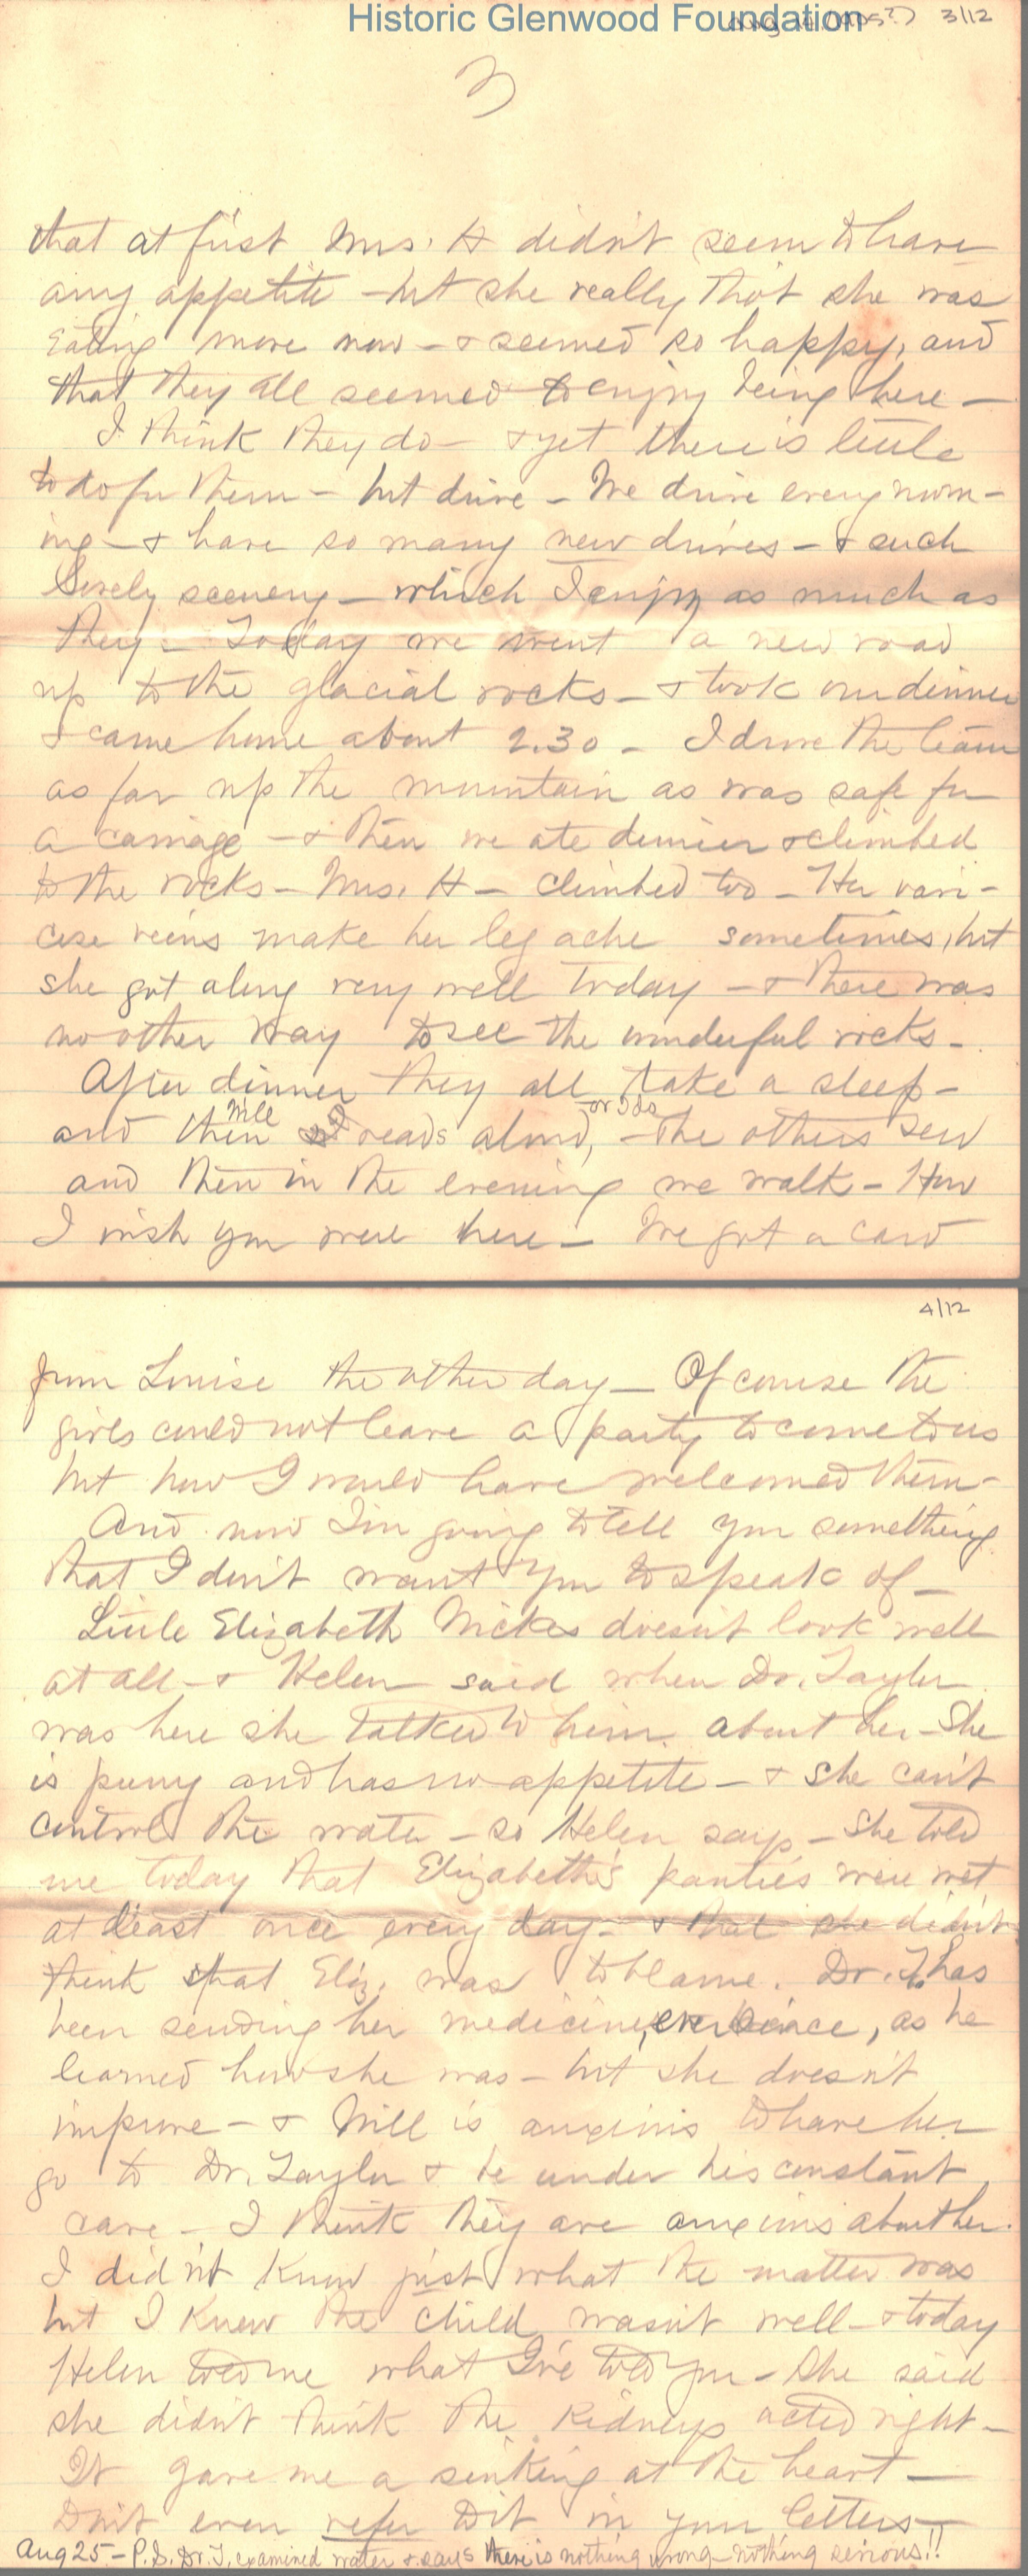 Historic Glenwood Foundation
3/12
3
that at first Mrs. H didn't seem to have
any appetite - but she really thot she was
eating more now - & seemed so happy, and
that they all seemed to enjoy being here -
I think they do - & yet there is little
to do for them - but drive - We drive every morn-
ing - & have so many new drives - & such
lovely scenery - which I enjoy as much as
they - Today we went a new road
up to the glacial rocks - & took our dinner
& came home about 2.30 - I drove the team
as far up the mountain as was safe for
a carriage - & then we ate dinner & climbed
to the rocks - Mrs. H - climbed too - Her vari-
cose veins make her leg ache sometimes, but
she got along very well today - & there was
no other way to see the wonderful rocks -
After dinner they all take a sleep -
and then Will or Ida reads aloud, - the others sew
and then in the evening we walk - How
I wish you were here - We got a card
4/12
from Louise the other day - Of course the
girls could not leave a party to come to us
but how I would have welcomed them -
And now I'm going to tell you something
that I don't want you to speak of -
Little Elizabeth Mickes doesn't look well
at all - & Helen said when Dr. Taylor
was here she talked to him about her - She
is puny and has no appetite - & she can't
control the water - so Helen says - She told
me today that Elizabeth's panties were wet
at least once every day - & that she didn't
think that Eliz. was to blame. Dr. T. has
been sending her medicine, ever since, as he
learned how she was - but she doesn't
improve - & Will is anxious to have her
go to Dr. Taylor & be under his constant
care - I think they are anxious about her.
I didn't know just what the matter was
but I knew the child wasn't well - & today
Helen told me what I've told you - She said
she didn't think the kidneys acted right -
It gave me a sinking at the heart -
Don't even refer to it in your letters -
Aug 25 - P.S. Dr. T. examined water & says there is nothing wrong - nothing serious!!